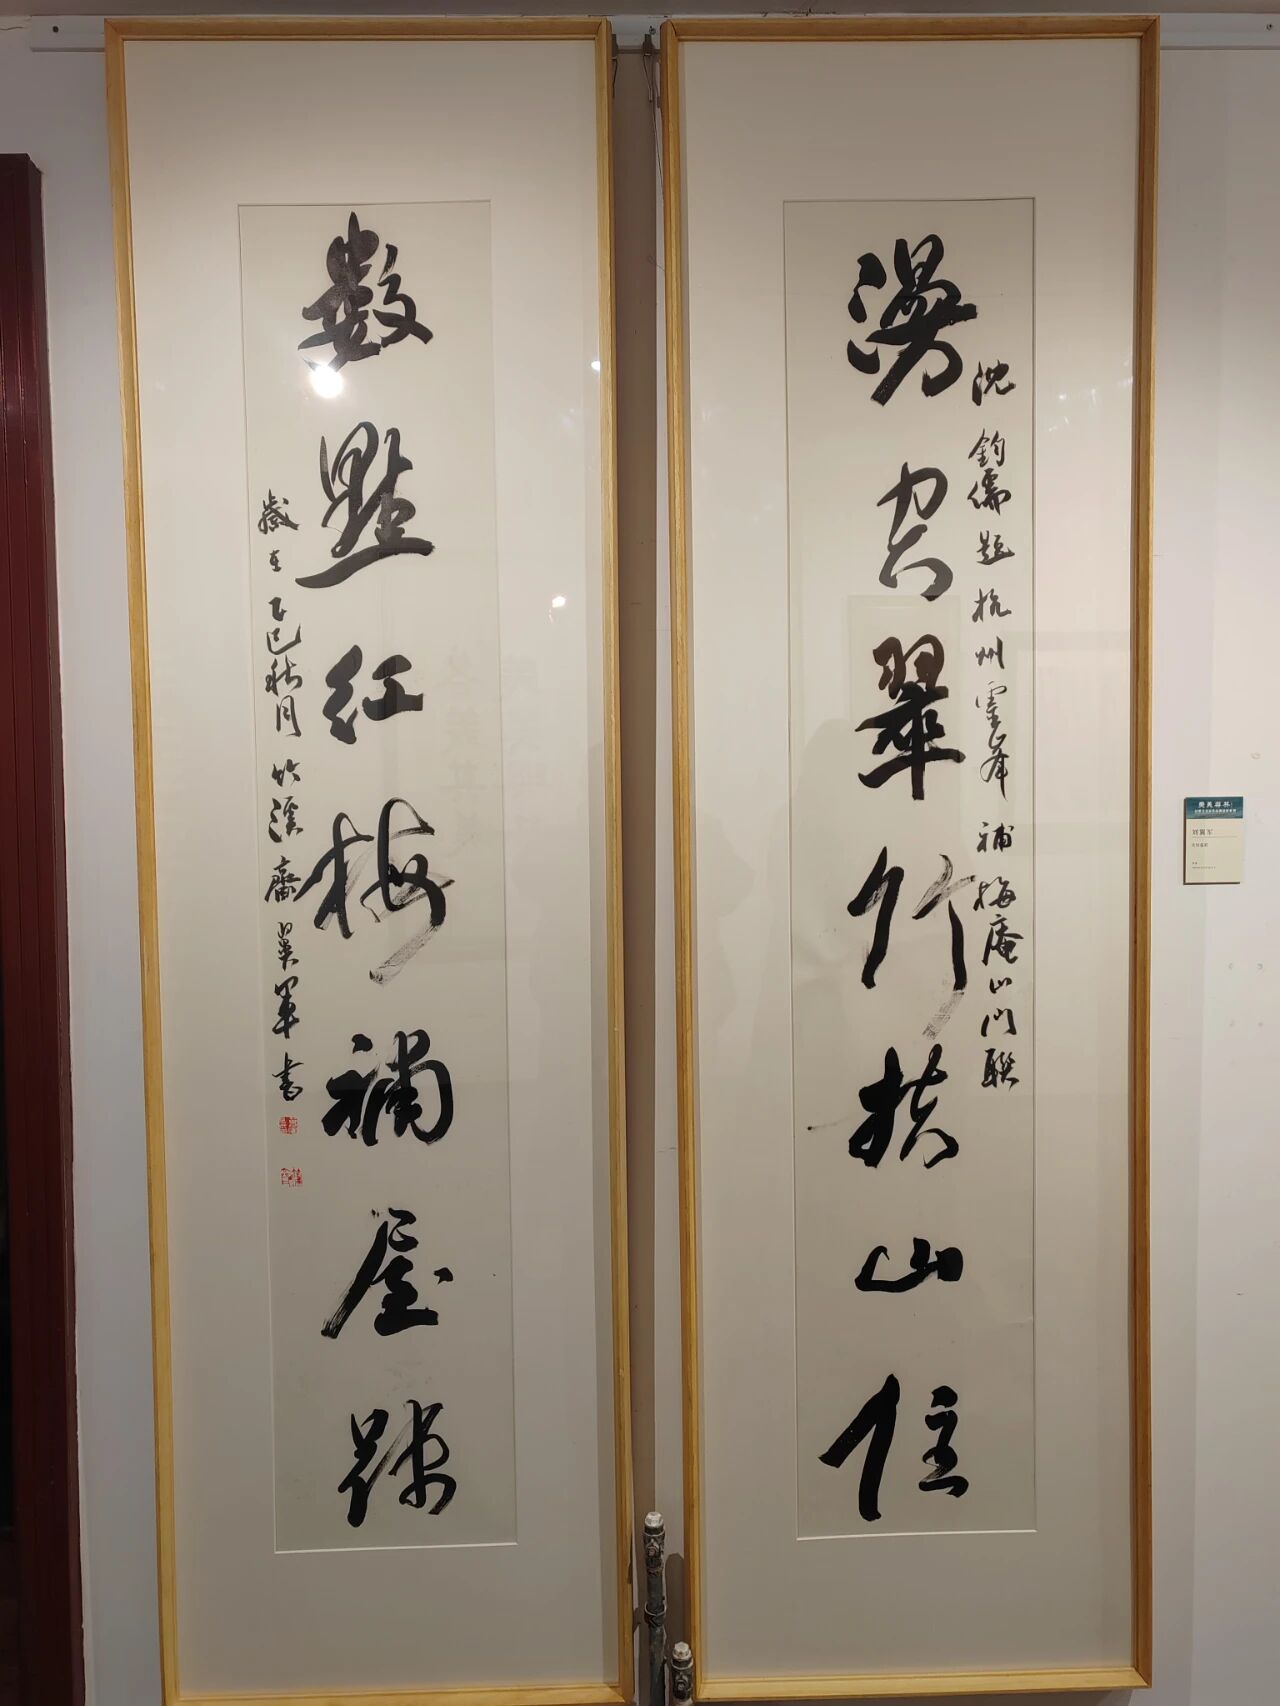 漫空翠竹扶山住
沈鈞儒題杭州靈峰補梅庵山門聯
數點紅梅補屋疏
歲在乙巳秋月竹溪齋翼軍書
刘翼军